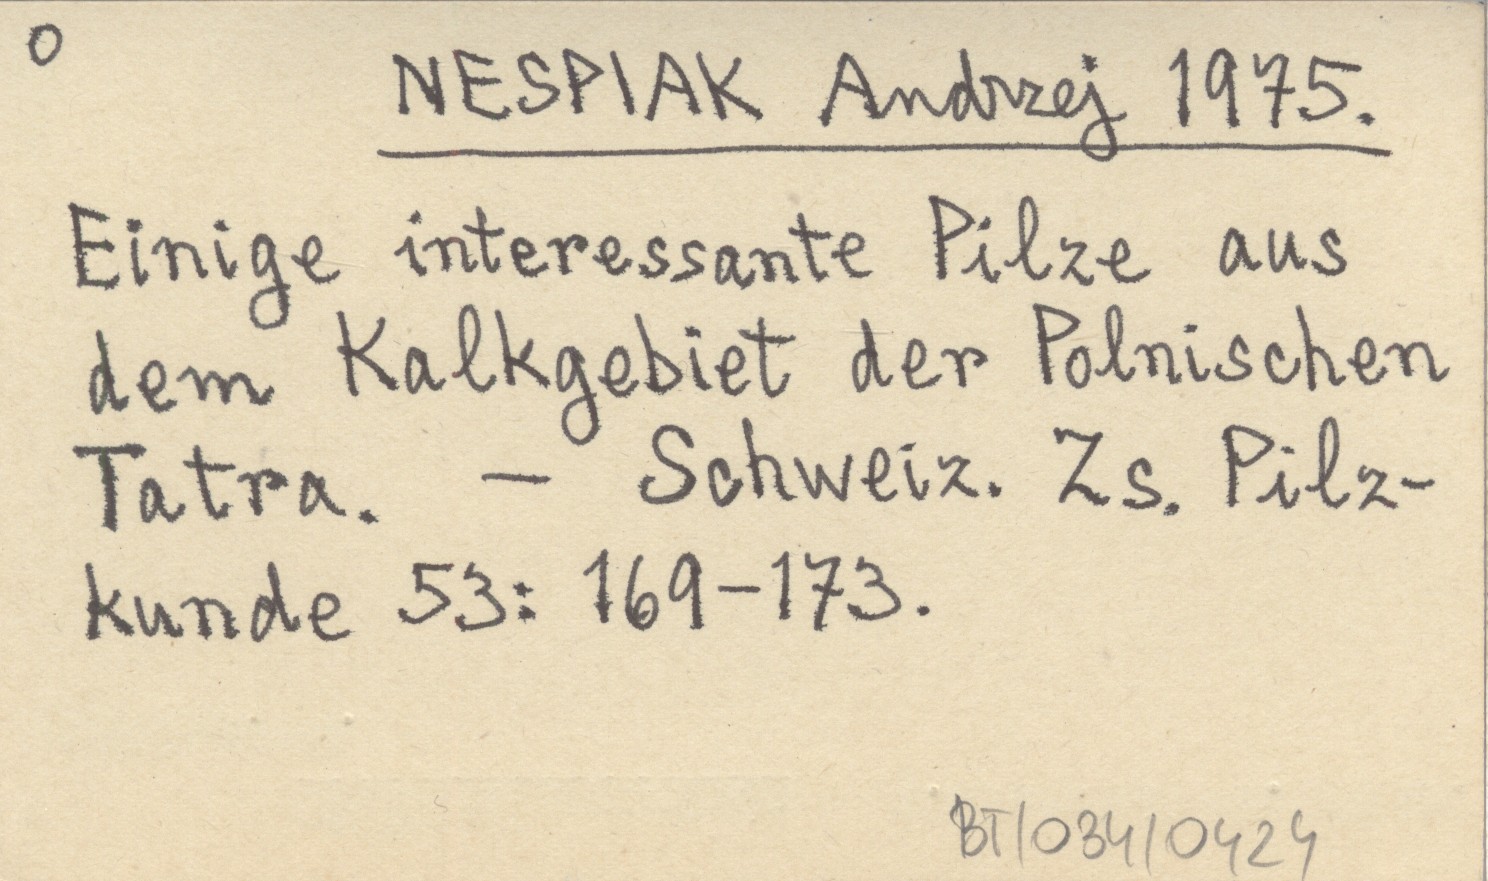 O
NESPIAK Andrzej 1975.
Einige interessante Pilze aus
dem Kalkgebiet der Polnischen
Tatra. – Schweiz. Zs. Pilz-
kunde 53: 169–173.
BT/034/0424